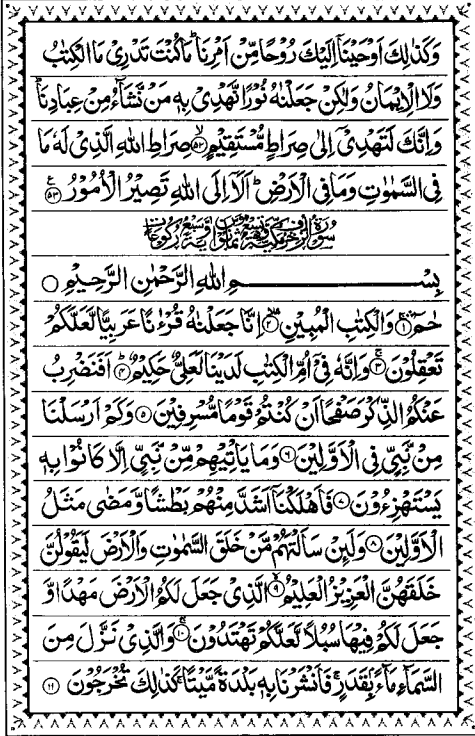 وَكَذٰلِكَ اَوْحَيْنَاۤ اِلَيْكَ رُوْحًا مِّنْ اَمْرِنَا ؕ مَا كُنْتَ تَدْرِىْ مَا الْكِتٰبُ
وَلَا الْاِيْمَانُ وَلٰكِنْ جَعَلْنٰهُ نُوْرًا نَّهْدِىْ بِهٖ مَنْ نَّشَآءُ مِنْ عِبَادِنَا ؕ
وَاِنَّكَ لَتَهْدِىْۤ اِلٰى صِرَاطٍ مُّسْتَقِيْمٍ ۙ۝۵۲ صِرَاطِ اللّٰهِ الَّذِىْ لَهٗ مَا
فِى السَّمٰوٰتِ وَمَا فِى الْاَرْضِ ؕ اَلَاۤ اِلَى اللّٰهِ تَصِيْرُ الْاُمُوْرُ ۝۵۳ ع
بِسْمِ اللّٰهِ الرَّحْمٰنِ الرَّحِيْمِ ۝
حٰمٓ ۝۱ وَالْكِتٰبِ الْمُبِيْنِ ۝۲ اِنَّا جَعَلْنٰهُ قُرْءٰنًا عَرَبِيًّا لَّعَلَّكُمْ
تَعْقِلُوْنَ ۝۳ وَاِنَّهٗ فِىْۤ اُمِّ الْكِتٰبِ لَدَيْنَا لَعَلِىٌّ حَكِيْمٌ ؕ۝۴ اَفَنَضْرِبُ
عَنْكُمُ الذِّكْرَ صَفْحًا اَنْ كُنْتُمْ قَوْمًا مُّسْرِفِيْنَ ۝۵ وَكَمْ اَرْسَلْنَا
مِنْ نَّبِىٍّ فِى الْاَوَّلِيْنَ ۝۶ وَمَا يَاْتِيْهِمْ مِّنْ نَّبِىٍّ اِلَّا كَانُوْا بِهٖ
يَسْتَهْزِءُوْنَ ۝۷ فَاَهْلَكْنَاۤ اَشَدَّ مِنْهُمْ بَطْشًا وَّمَضٰى مَثَلُ
الْاَوَّلِيْنَ ۝۸ وَلَئِنْ سَاَلْتَهُمْ مَّنْ خَلَقَ السَّمٰوٰتِ وَالْاَرْضَ لَيَقُوْلُنَّ
خَلَقَهُنَّ الْعَزِيْزُ الْعَلِيْمُ ۙ۝۹ الَّذِىْ جَعَلَ لَكُمُ الْاَرْضَ مَهْدًا وَّ
جَعَلَ لَكُمْ فِيْهَا سُبُلًا لَّعَلَّكُمْ تَهْتَدُوْنَ ۚ۝۱۰ وَالَّذِىْ نَزَّلَ مِنَ
السَّمَآءِ مَآءًۢ بِقَدَرٍ ۚ فَاَنْشَرْنَا بِهٖ بَلْدَةً مَّيْتًا ۚ كَذٰلِكَ تُخْرَجُوْنَ ۝۱۱